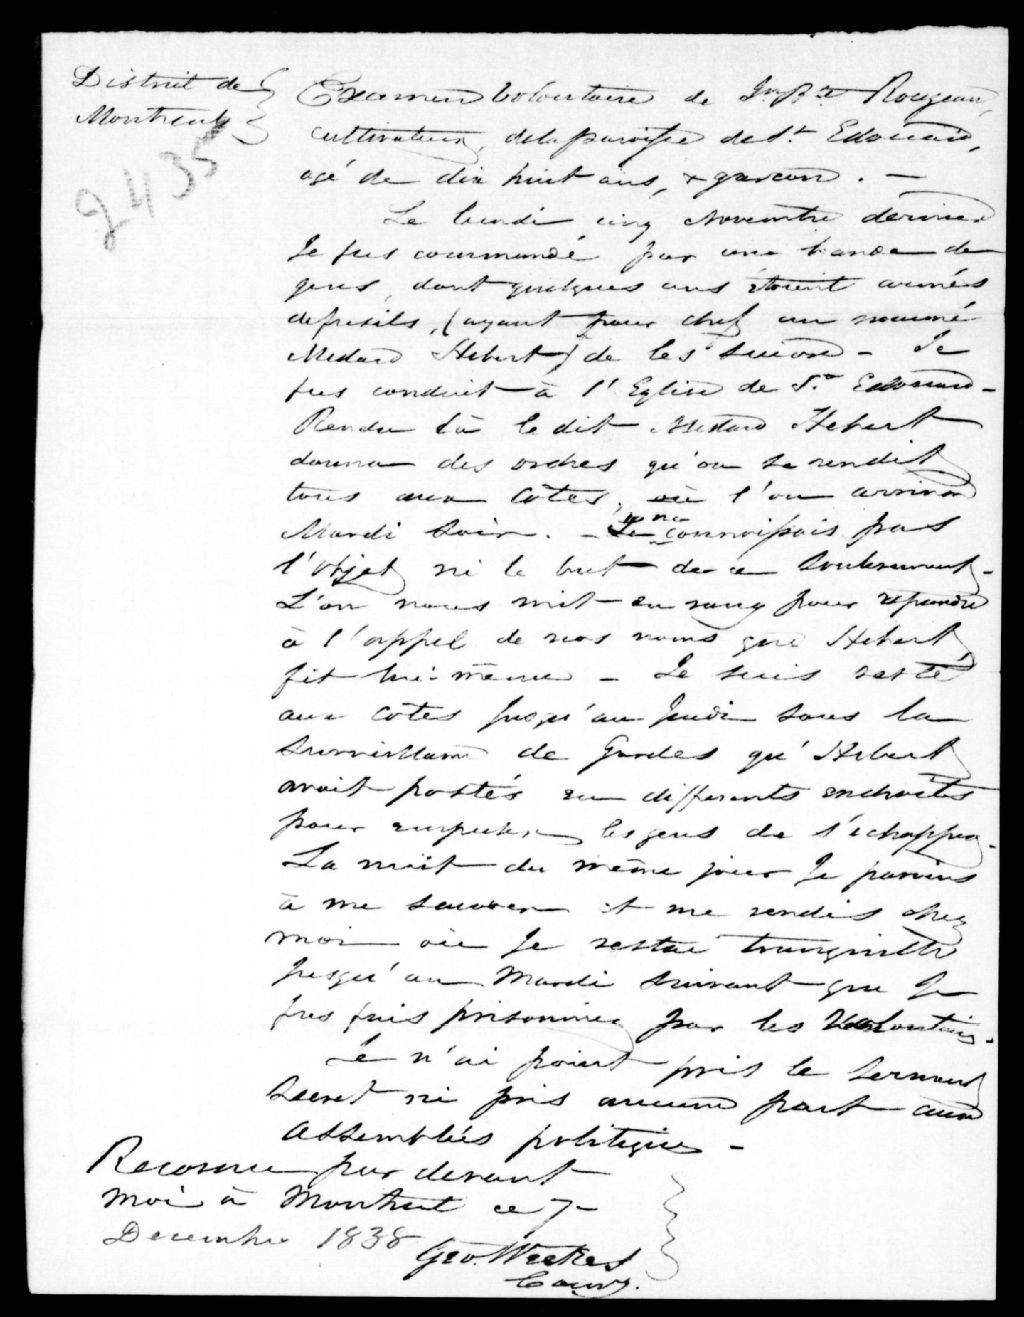 District de
Montreal
2435
Examen Volontaire de Jn Bte Rougeau,
cultivateur, de la paroisse de St. Edouard,
agé de dix huit ans, & garcon. —
Le lundi cinq Novembre dernier
Je fus commandé par une bande de
gens, dont quelques uns étoient armés
defusils, (ayant pour chef un nommé
Medard Hebert) de les suivre - Je
fus conduit à l'Eglise de St. Edouard -
Rendu là le dit Medard Hebert
donna des ordres qu'on se rendit
tous aux Cotes, où l'on arriva
Mardi Soir. - Je ne connoissois pas
l'objet ni le but de ce Soulevement -
L'on nous mit en rang pour repondre
à l'appel de nos noms que Hebert
fit lui-même - Je suis resté
aux Cotes jusqu'au Jeudi sous la
Surveillance de Gardes qu'Hebert
avoit postés en differents endroits
pour empecher les gens de s'échapper -
La nuit du même jour Je parvins
à me sauver et me rendis chez
moi où Je restai tranquille
jusqu'au Mardi suivant que Je
fus fais prisonnier par les Volontaires -
Je n'ai point pris le Serment
Secret ni pris aucune part aux
Assemblées politiques -
Reconnu par devant
moi à Montreal ce 7 -
Decembre 1838
Geo. Weekes